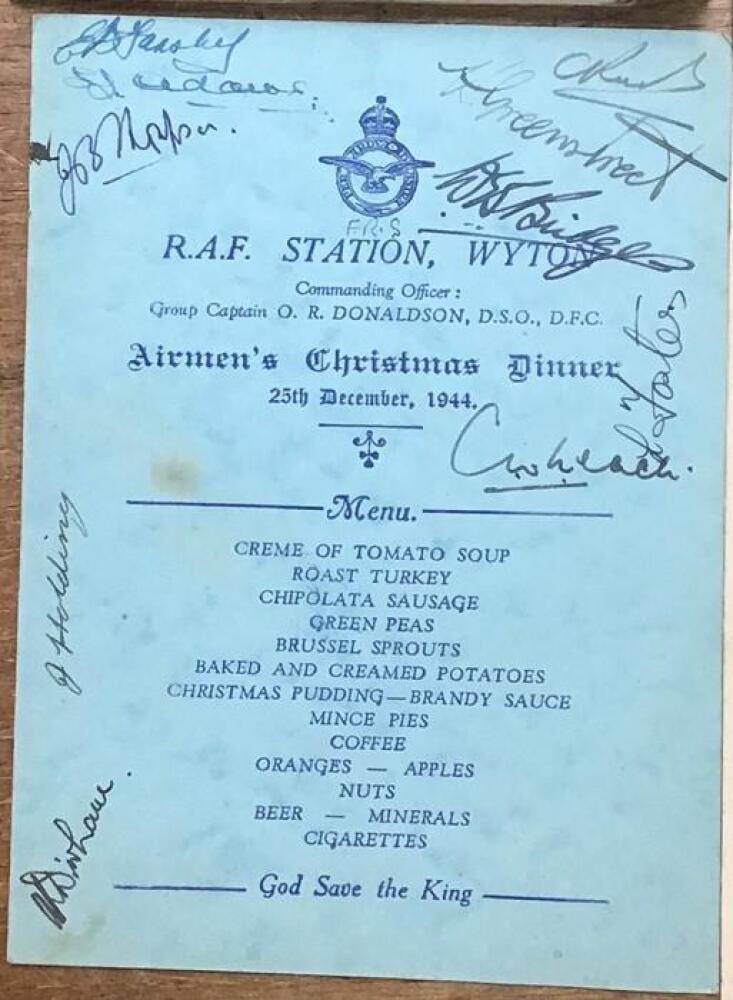 F.R.S
R.A.F. STATION, WYTON
Commanding Officer :
Group Captain O. R. DONALDSON, D.S.O., D.F.C.
Airmen's Christmas Dinner
25th December, 1944.
Menu.
CREME OF TOMATO SOUP
ROAST TURKEY
CHIPOLATA SAUSAGE
GREEN PEAS
BRUSSEL SPROUTS
BAKED AND CREAMED POTATOES
CHRISTMAS PUDDING — BRANDY SAUCE
MINCE PIES
COFFEE
ORANGES — APPLES
NUTS
BEER — MINERALS
CIGARETTES
God Save the King
Greenstreet
J Holding